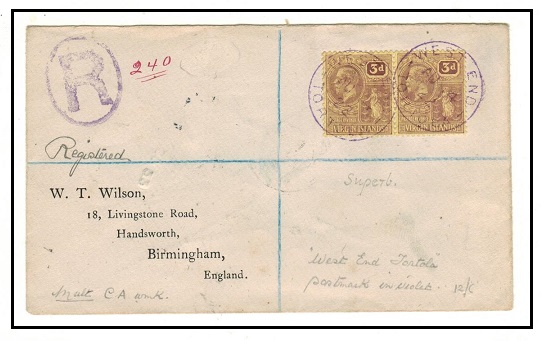 R
240
3d 3d
WEST END
VIRGIN ISLANDS VIRGIN ISLANDS
Registered
W. T. Wilson,
18, Livingstone Road,
Handsworth,
Birmingham,
England.
Superb.
West End Tortola
postmark in violet. 12/6
Mult C A wmk.